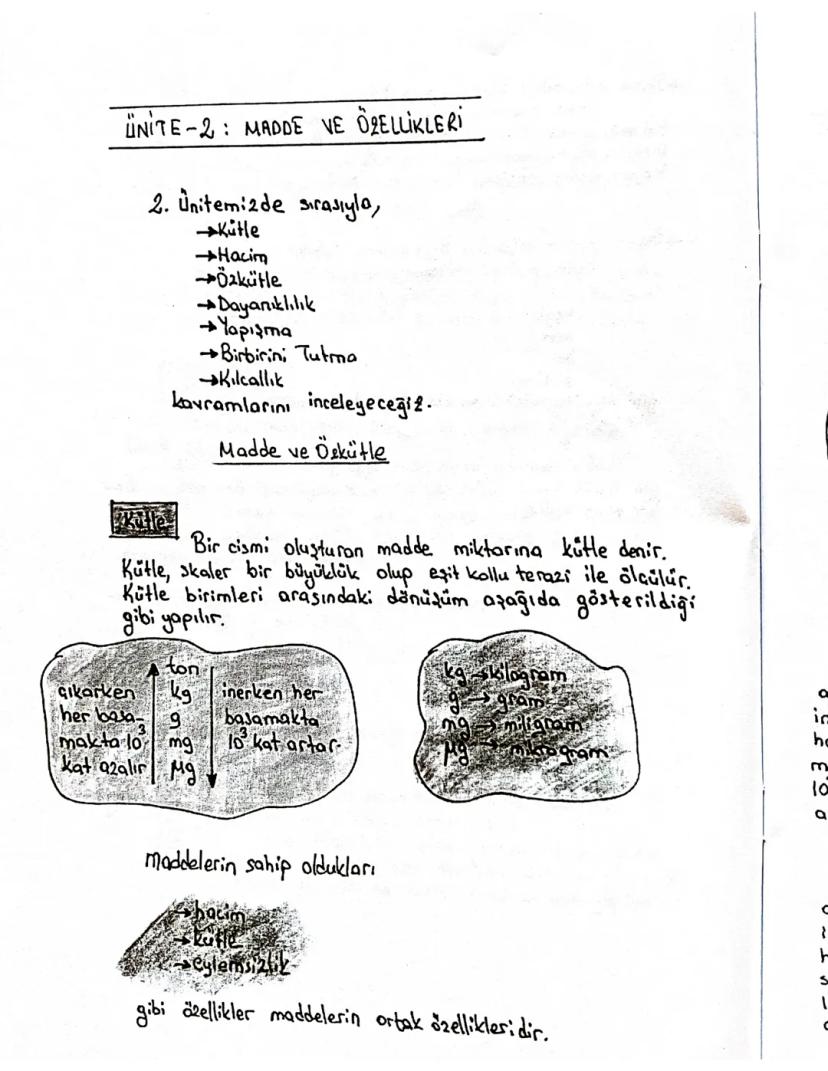 ÜNİTE-2: MADDE VE ÖZELLİKLERİ
2. Ünitemizde sırasıyla,
→Kütle
→Hacim
→Özkütle
→Dayanıklılık
→Yapışma
→Birbirini Tutma
→Kılcallık
kavramlarını inceleyeceğiz.
Madde ve Özkütle
Kütle
Bir cismi oluşturan madde miktarına kütle denir.
Kütle, skaler bir büyüklük olup eşit kollu terazi ile ölçülür.
Kütle birimleri arasındaki dönüşüm aşağıda gösterildiği
gibi yapılır.
çıkarken
her basa-
makta 10³
kat azalır
ton
kg
g
mg
µg
inerken her
basamakta
10³ kat artar.
kg→kilogram
g → gram
mg → miligram
µg → mikrogram
Maddelerin sahip oldukları
→hacim
→kütle
→eylemsizlik
gibi özellikler maddelerin ortak özellikleridir.